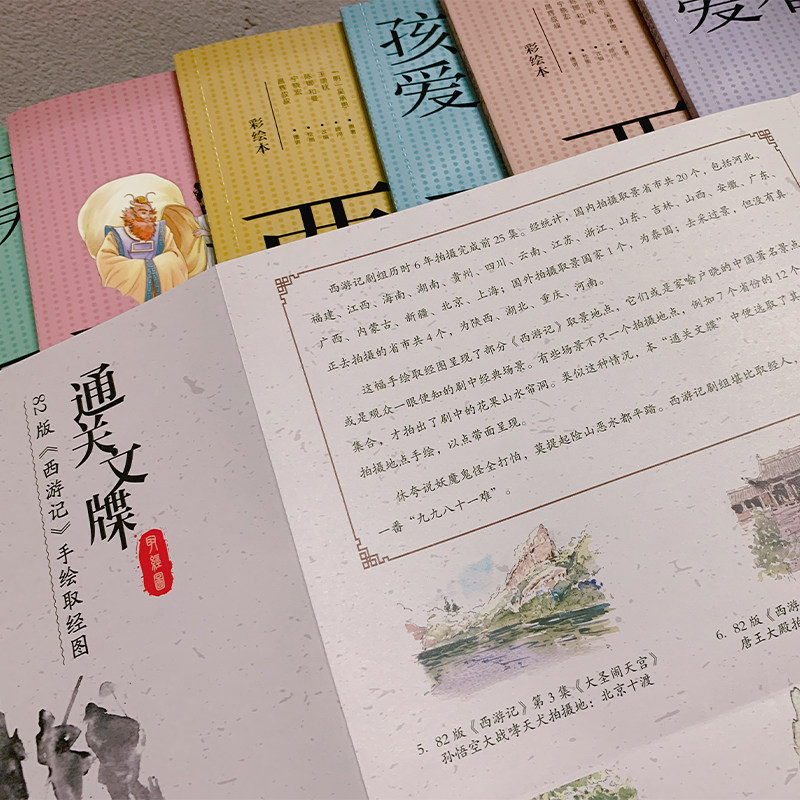 孩爱
彩绘本
彩绘本
西
通关文牒
82版《西游记》手绘取经图
取经图
西游记剧组历时6年拍摄完成前25集。经统计，国内拍摄取景省市共20个，包括河北、
福建、江西、海南、湖南、贵州、四川、云南、江苏、浙江、山东、吉林、山西、安徽、广东、
广西、内蒙古、新疆、北京、上海；国外拍摄取景国家1个，为泰国；去采过景，但没有真
正去拍摄的省市共4个，为陕西、湖北、重庆、河南。
这幅手绘取经图呈现了部分《西游记》取景地点，它们或是家喻户晓的中国著名景点
或是观众一眼便知的剧中经典场景。有些场景不只一个拍摄地点，例如7个省份的12个
集合，才拍出了剧中的花果山水帘洞。类似这种情况，本“通关文牒”中便选取了其
拍摄地点手绘，以点带面呈现。
休夸说妖魔鬼怪全打怕，莫提起险山恶水都平踏。西游记剧组堪比取经人，
一番“九九八十一难”。
5. 82版《西游记》第3集《大圣闹天宫》
孙悟空大战哮天犬拍摄地：北京十渡
6. 82版《西游
唐王大殿拍